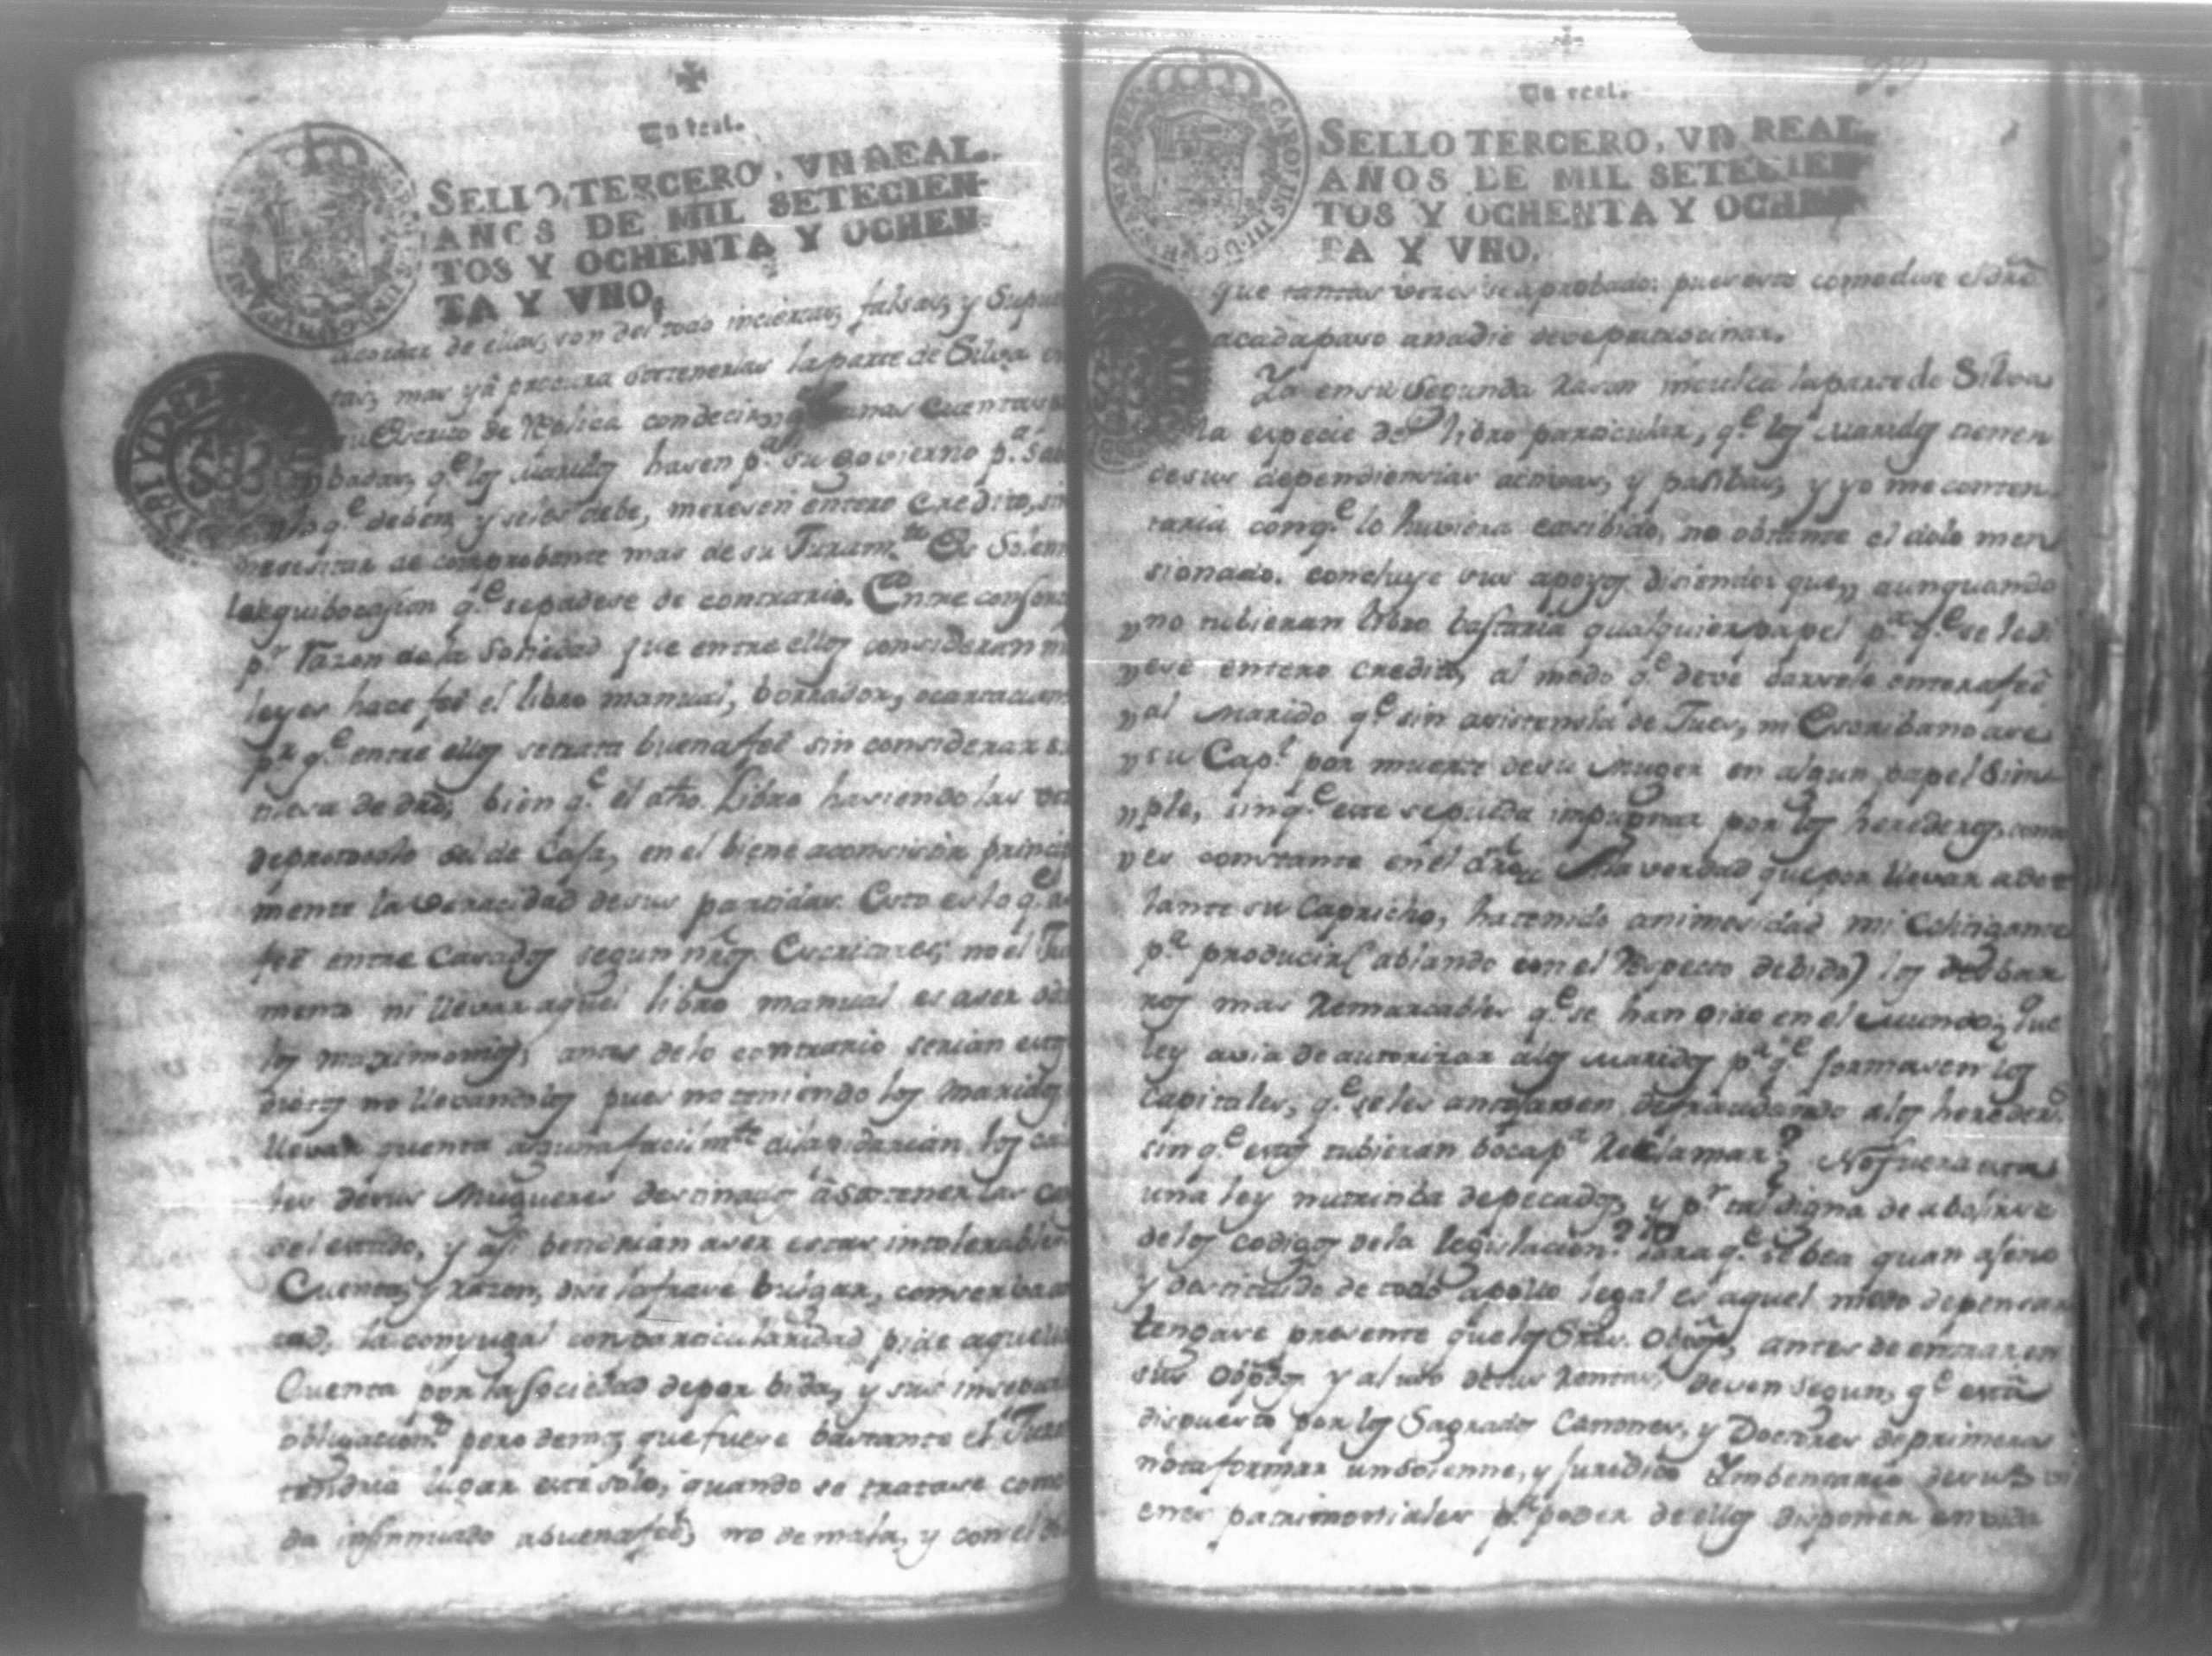 Un real.
SELLO TERCERO, VN REAL.
AÑOS DE MIL SETECIEN-
TOS Y OCHENTA Y OCHEN-
TA Y VNO.
de ellas, son del todo inciertas, falsas, y Supu
tas, mas ya procura sostenerlas la parte de Silva
Escrito de Replica con decir, cuentas
badas, q.e los Maridos hasen p.a su govierno p.a
lo q.e deben, y se les debe, meresen entero credito, sin
nesesitar de comprobante mas de su Juram.to Es Solem
la equibocasion q.e se padese de contrario. Entre consor
p.r razon de la Sosiedad que entre ellos consideran
leyes hace feé el libro manual, borrador,
p.r q.e entre ellos se trata buena feé sin considerar
bien q.e el dho. Libro hasiendo las
de protocolo del de Caja, en el biene a consistir princi
mente la veracidad de sus partidas. Esto es lo q.e
feé entre Casados segun nros. Escritores; no el Ju
mento ni llevar aquel libro manual es aser
los matrimonios, antes de lo contrario serian
no llevandolos pues no teniendo los maridos
llevar quenta alguna facilm.te dilapidarian los cau
les de sus Mugeres destinados á sostener las ca
del estado, y assi bendrian a ser estas intolerables
Cuenta, y razon, dise la frase bulgar, conserba
tad, la conyugal con particularidad pide aquella
Cuenta por la sociedad de por bida, y sus insepara
obligacion.s pero demos que fuese bastante el Jura
tendria lugar este solo, quando se tratase como
da insinuado a buena feé, no de mala, y con el
Un real.
SELLO TERCERO, VN REAL.
AÑOS DE MIL SETECIEN-
TOS Y OCHENTA Y OCHEN-
TA Y VNO.
que tantas veses se a probado: pues este como dise el dro
a cada paso a nadie deve patrosinar.
Ya en su Segunda razon inculca la parte de Silva
la especie del libro particular, q.e los Maridos tienen
de sus dependiensias activas, y pasibas, y yo me conten
taria con q.e lo huviera escribido, no obstante el dolo men
sionado. concluye sus apoyos disiendo: que,, aunquando
,,no tubieran libro bastaria qualquier papel p.a q.e se le di
,,ese entero credito, al modo q.e deve darsele entera feé
,,al Marido q.e sin asistensia de Jues, ni Escribano ase
,,su Cap.l por muerte de su Muger en algun papel Sim
,,ple, sin q.e este se pueda impugnar por los herederos, como
,,es constante en el dro,, A la verdad que por llevar ade
lante su Capricho, ha tenido animosidad mi Colitigante
p.a producir (ablando con el Respecto debido) los desbar
ros mas Remarcables q.e se han oido en el Mundo; Que
ley avia de autorizar a los Maridos p.a q.e formasen los
Capitales, q.e se les antojasen defraudando a los hereder.s
sin q.e estos tubieran boca p.a Reclamar? No fuera esta
una ley nutriniba de pecados, y p.r tal digna de abolirse
de los codigos de la legislacion? Para q.e se bea quan ageno
y destituido de todo apollo legal es aquel modo de pensar
tengase presente que los Sres. Obpos, antes de entrar en
sus Obpdos y al uso de sus Rentas, deven segun, q.e está
dispuesto por los Sagrados Canones, y Doctores de primera
nota formar un solenne, y juridico Ymbentario de sus bi
enes patrimoniales p.a poder de ellos disponer en vida